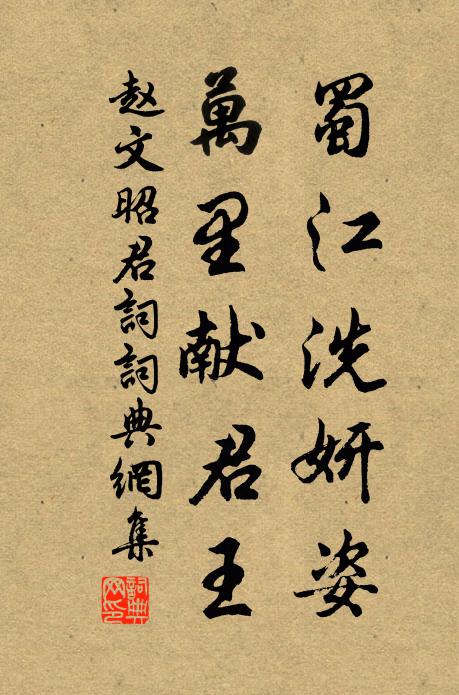 蜀江洗妍姿
萬里献君王
赵文昭君詞詞典網集
詞典網印